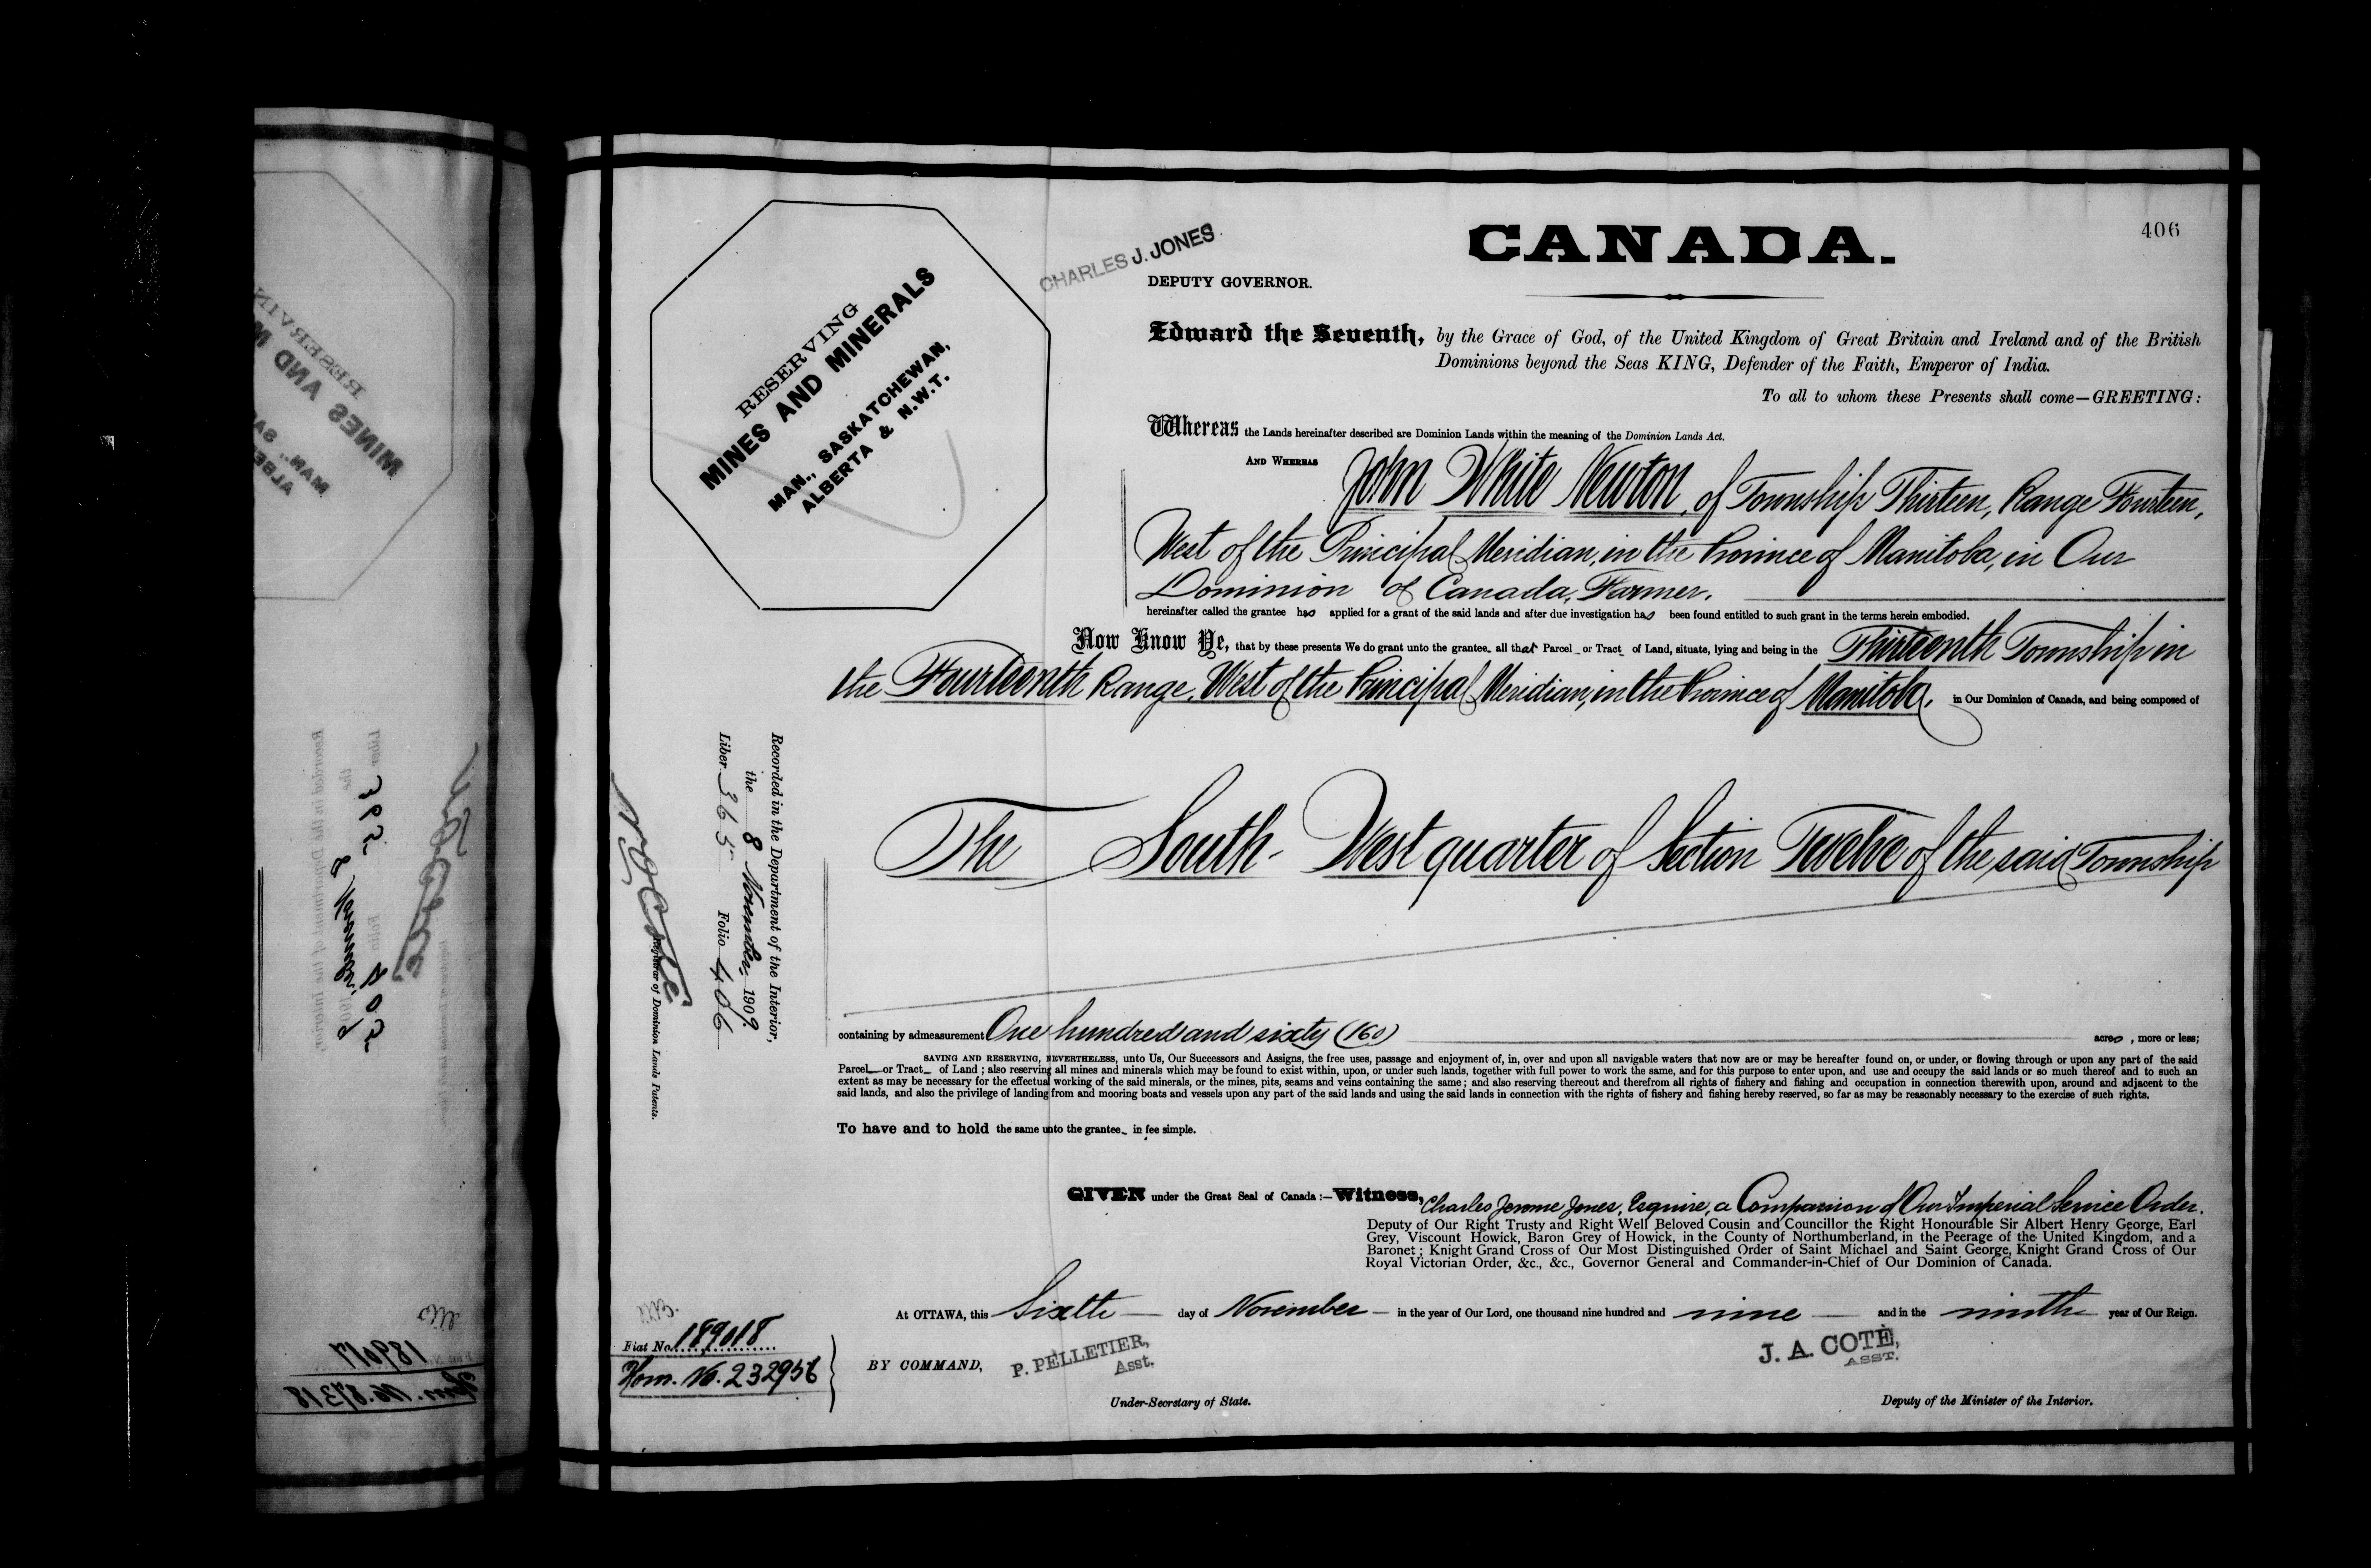 406
CANADA.
CHARLES J. JONES
DEPUTY GOVERNOR.
RESERVING
MINES AND MINERALS
MAN., SASKATCHEWAN,
ALBERTA & N.W.T.
Edward the Seventh, by the Grace of God, of the United Kingdom of Great Britain and Ireland and of the British
Dominions beyond the Seas KING, Defender of the Faith, Emperor of India.
To all to whom these Presents shall come—GREETING:
Whereas the Lands hereinafter described are Dominion Lands within the meaning of the Dominion Lands Act.
AND WHEREAS John White Newton, of Township Thirteen, Range Fourteen,
West of the Principal Meridian, in the Province of Manitoba, in Our
Dominion of Canada, Farmer.
hereinafter called the grantee has applied for a grant of the said lands and after due investigation has been found entitled to such grant in the terms herein embodied.
Now Know Ye, that by these presents We do grant unto the grantee all that Parcel or Tract of Land, situate, lying and being in the Thirteenth Township in
the Fourteenth Range, West of the Principal Meridian, in the Province of Manitoba, in Our Dominion of Canada, and being composed of
The South-West quarter of Section Twelve of the said Township
containing by admeasurement One hundred and sixty (160) acres, more or less;
SAVING AND RESERVING, NEVERTHELESS, unto Us, Our Successors and Assigns, the free uses, passage and enjoyment of, in, over and upon all navigable waters that now are or may be hereafter found on, or under, or flowing through or upon any part of the said
Parcel or Tract of Land; also reserving all mines and minerals which may be found to exist within, upon, or under such lands, together with full power to work the same, and for this purpose to enter upon, and use and occupy the said lands or so much thereof and to such an
extent as may be necessary for the effectual working of the said minerals, or the mines, pits, seams and veins containing the same; and also reserving thereout and therefrom all rights of fishery and fishing and occupation in connection therewith upon, around and adjacent to the
said lands, and also the privilege of landing from and mooring boats and vessels upon any part of the said lands and using the said lands in connection with the rights of fishery and fishing hereby reserved, so far as may be reasonably necessary to the exercise of such rights.
To have and to hold the same unto the grantee in fee simple.
GIVEN under the Great Seal of Canada:—Witness, Charles Jerome Jones, Esquire, a Companion of Our Imperial Service Order.
Deputy of Our Right Trusty and Right Well Beloved Cousin and Councillor the Right Honourable Sir Albert Henry George, Earl
Grey, Viscount Howick, Baron Grey of Howick, in the County of Northumberland, in the Peerage of the United Kingdom, and a
Baronet; Knight Grand Cross of Our Most Distinguished Order of Saint Michael and Saint George, Knight Grand Cross of Our
Royal Victorian Order, &c., &c., Governor General and Commander-in-Chief of Our Dominion of Canada.
At OTTAWA, this Sixth day of November in the year of Our Lord, one thousand nine hundred and nine and in the ninth year of Our Reign.
BY COMMAND,
P. PELLETIER,
Asst.
Under-Secretary of State.
J. A. COTÉ,
ASST.
Deputy of the Minister of the Interior.
Recorded in the Department of the Interior,
the 8 November, 1909.
Liber 365 Folio 406
Registrar of Dominion Lands Patents.
Fiat No. 189018
Hom. No. 232956